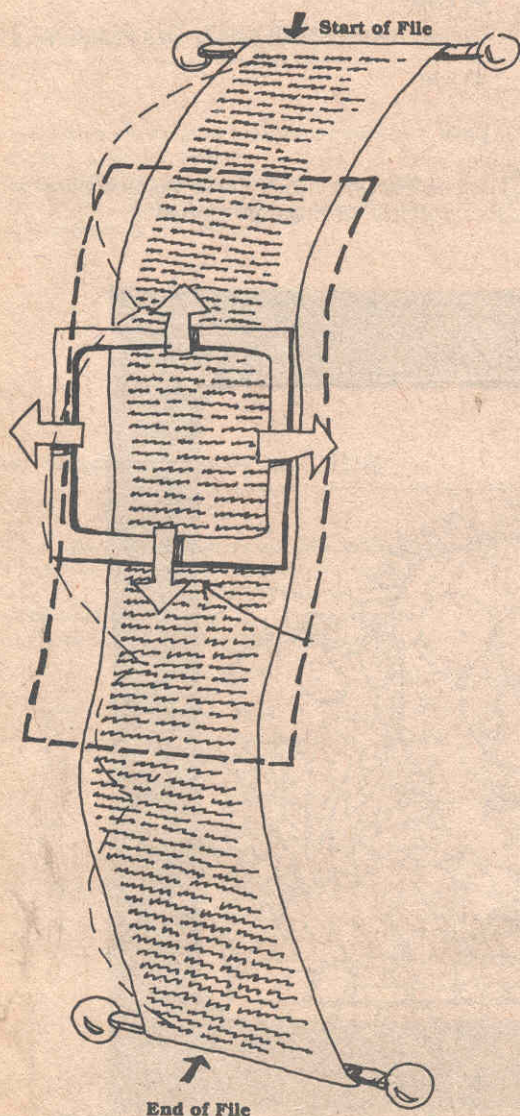 Start of File
End of File